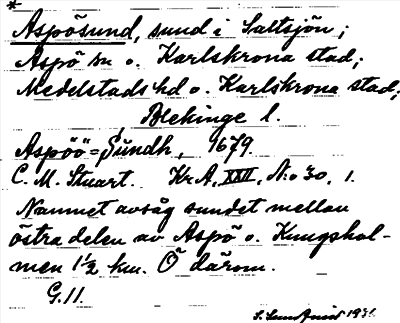 *
Aspösund, sund i Saltsjön;
Aspö sn o. Karlskrona stad;
Medelstads hd o. Karlskrona stad;
Blekinge l.
Aspöö=Sundh, 1679.
C. M. Stuart. Kr A, XXII, N:o 30, 1.
Namnet avsåg sundet mellan
östra delen av Aspö o. Kungshol-
men 1 1/2 km. Ö därom.
G.11.
1931.